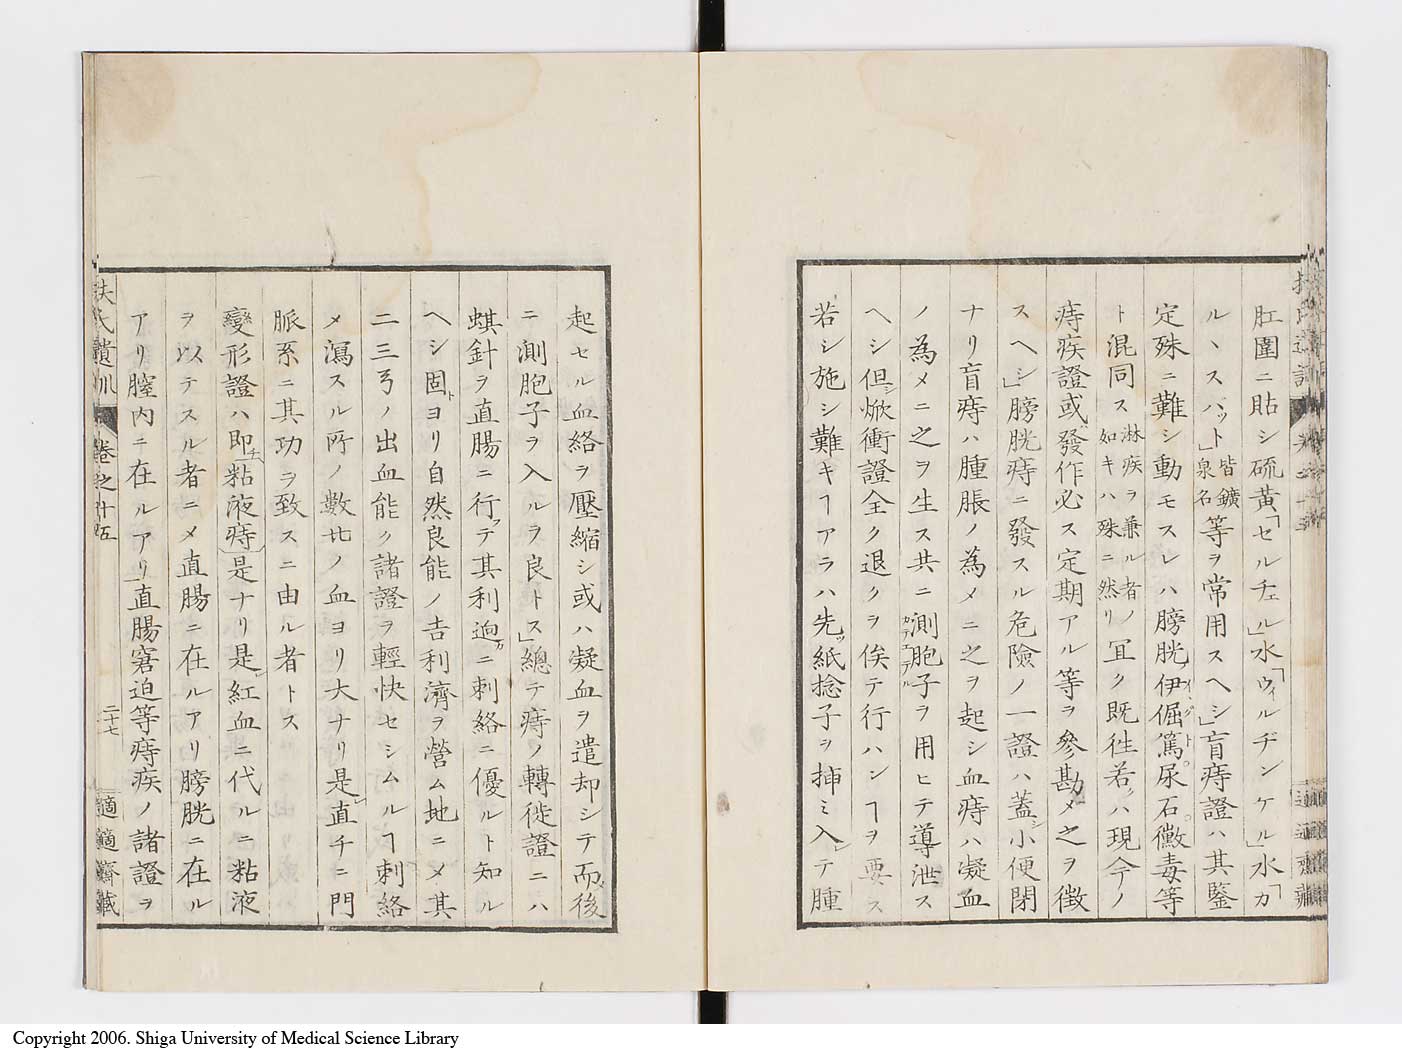 肛圍ニ貼シ硫黄「セルチェル」水「ウィルヂンケル」水「カ
ルヽスバット」皆鑛泉名等ヲ常用スヘシ」盲痔證ハ其鑒
定殊ニ難シ動モスレハ膀胱伊倔篤尿石黴毒等
ト混同ス淋疾ヲ兼ル者ノ如キハ殊ニ然リ冝ク既徃若ハ現今ノ
痔疾證或發作必ス定期アル等ヲ參勘メ之ヲ徴
スヘシ」膀胱痔ニ發スル危險ノ一證ハ蓋小便閉
ナリ盲痔ハ腫脹ノ為メニ之ヲ起シ血痔ハ凝血
ノ為メニ之ヲ生ス共ニ測胞子カテエテルヲ用ヒテ導泄ス
ヘシ但焮衝證全ク退クヲ俟テ行ハンヿヲ要ス
若シ施シ難キヿアラハ先ツ紙捻子ヲ挿ミ入テ腫
起セル血絡ヲ壓縮シ或ハ凝血ヲ遣却シテ而後
ニ測胞子ヲ入ルヲ良トス」總テ痔ノ轉徙證ニハ
蜞針ヲ直腸ニ行テ其利逈ニ刺絡ニ優ルト知ル
ヘシ固ヨリ自然良能ノ吉利濟ヲ營ム地ニメ其
二三弓ノ出血能ク諸證ヲ輕快セシムルヿ刺絡
メ瀉スル所ノ數比ノ血ヨリ大ナリ是直チニ門
脈系ニ其功ヲ致スニ由ル者トス
變形證ハ即チ粘液痔是ナリ是紅血ニ代ルニ粘液
ヲ以テスル者ニメ直腸ニ在ルアリ膀胱ニ在ル
アリ膣内ニ在ルアリ」直腸窘迫等痔疾ノ諸證ヲ
扶氏遺訓 卷之十五 二十七 適適齋藏
Copyright 2006. Shiga University of Medical Science Library